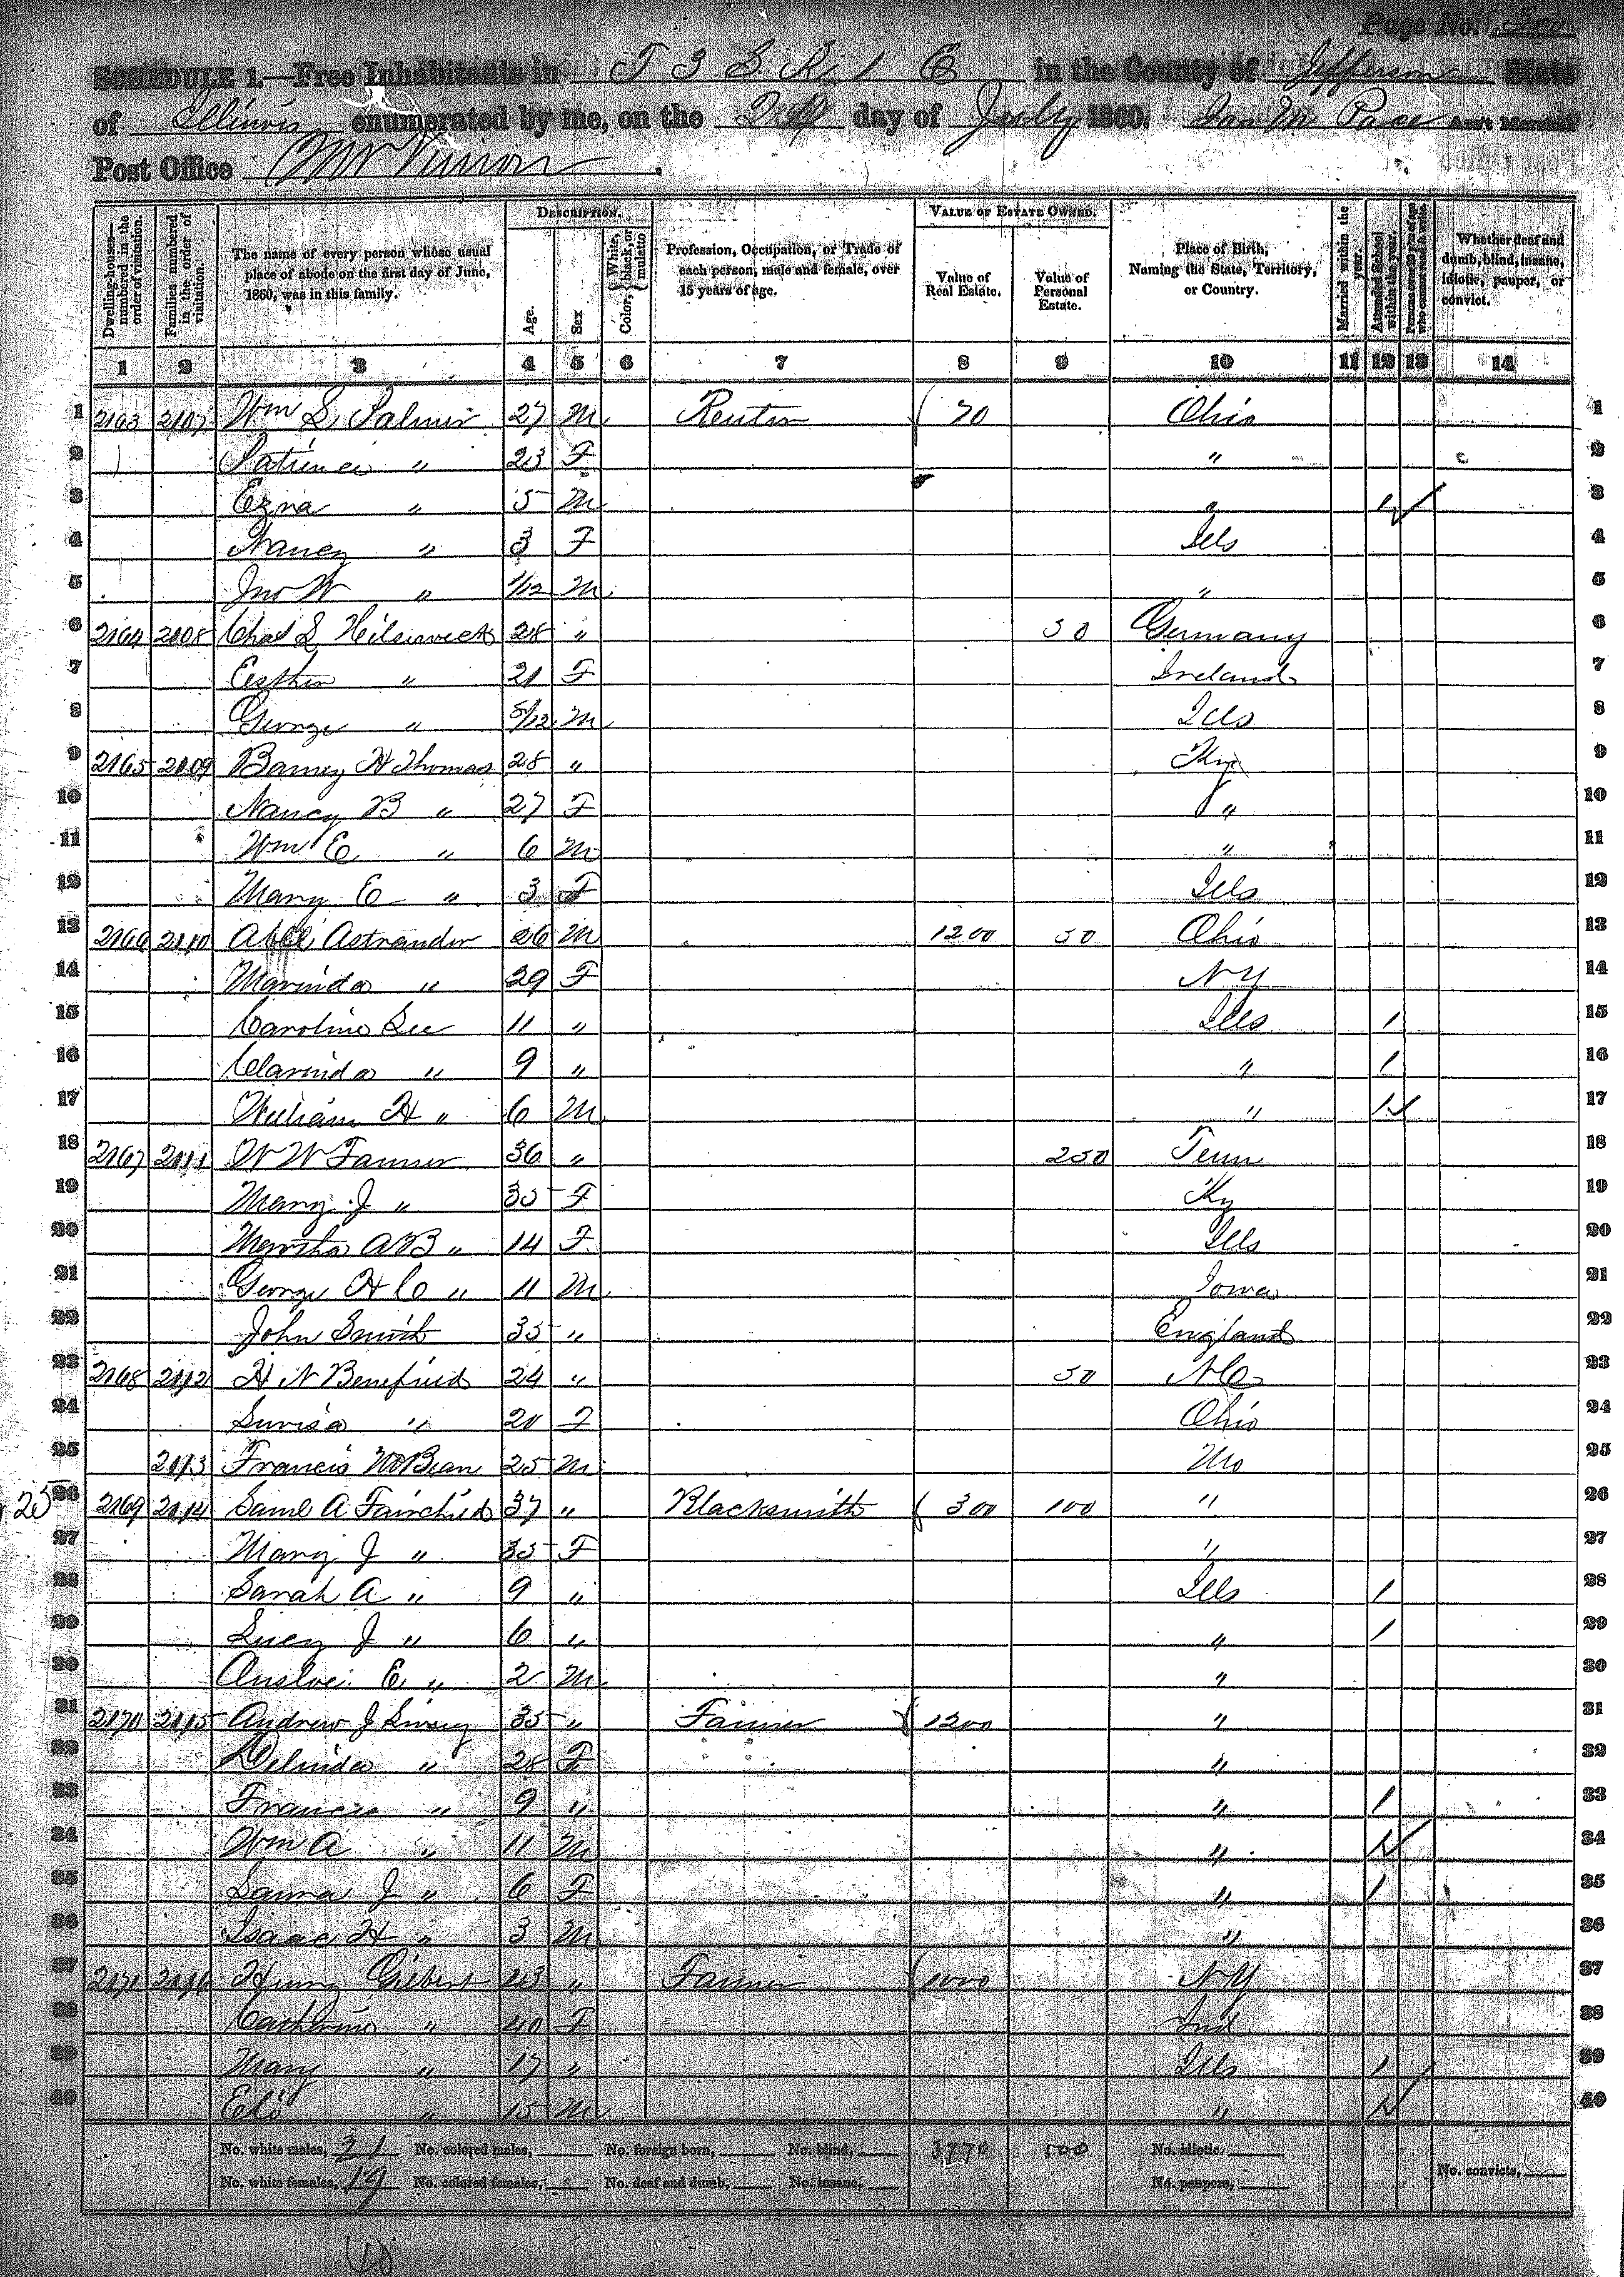 Page No.
SCHEDULE 1.—Free Inhabitants in T 3 S R 1 E in the County of Jefferson State
of Illinois enumerated by me, on the day of July 1860. Pace Ass't Marshal
Post Office Mt Vernon.
Dwelling-houses—numbered in the order of visitation. Families numbered in the order of visitation. The name of every person whose usual place of abode on the first day of June, 1860, was in this family. DESCRIPTION. Age. Sex Color, White, black, or mulatto Profession, Occupation, or Trade of each person, male and female, over 15 years of age. VALUE OF ESTATE OWNED. Value of Real Estate. Value of Personal Estate. Place of Birth, Naming the State, Territory, or Country. Married within the year. Attended School within the year. Persons over 20 y'rs of age who cannot read & write. Whether deaf and dumb, blind, insane, idiotic, pauper, or convict.
1 2 3 4 5 6 7 8 9 10 11 12 13 14
1 2163 2107 Wm S. Palmer 27 M Renter 70 Ohio 1
2 Patience " 23 F " 2
3 Ezra " 5 M " 1 3
4 Nancy " 3 F Ills 4
5 Jno W " 1/12 M " 5
6 2164 2108 Chas L 28 " 50 Germany 6
7 Esther " 21 F Ireland 7
8 George " 5/12 M Ills 8
9 2165 2109 Barney H Thomas 28 " Ky 9
10 Nancy B " 27 F " 10
11 Wm E " 6 M " 11
12 Mary E " 3 F Ills 12
13 2166 2110 Abel 26 M 1200 50 Ohio 13
14 Marinda " 29 F NY 14
15 Caroline Lee 11 " Ills 1 15
16 Clarinda " 9 " " 1 16
17 William H " 6 M " 1 17
18 2167 2111 W W Farmer 36 " 250 Tenn 18
19 Mary J " 35 F Ky 19
20 Martha A B " 14 F Ills 20
21 George H C " 11 M Iowa 21
22 John Smith 35 " England 22
23 2168 2112 H N Benefield 24 " 50 N C 23
24 " 20 F Ohio 24
25 2113 Francis McBean 25 M Mo 25
26 2169 2114 Saml A Fairchild 37 " Blacksmith 300 100 " 26
27 Mary J " 35 F " 27
28 Sarah A " 9 " Ills 1 28
29 Lucy J " 6 " " 1 29
30 E " 2 M " 30
31 2170 2115 Andrew J 35 " Farmer 1200 " 31
32 " 28 F " 32
33 Frances " 9 " " 1 33
34 Wm A " 11 M " 1 34
35 Laura J " 6 F " 1 35
36 Isaac H " 3 M " 36
37 2171 2116 Henry Gilbert 43 " Farmer 1000 NY 37
38 Catherine " 40 F Ind 38
39 Mary " 17 " Ills 1 39
40 Eli " 15 M " 1 40
No. white males, 21 No. colored males, No. foreign born, No. blind, 3770 500 No. idiotic,
No. white females, 19 No. colored females, No. deaf and dumb, No. insane, No. paupers, No. convicts,